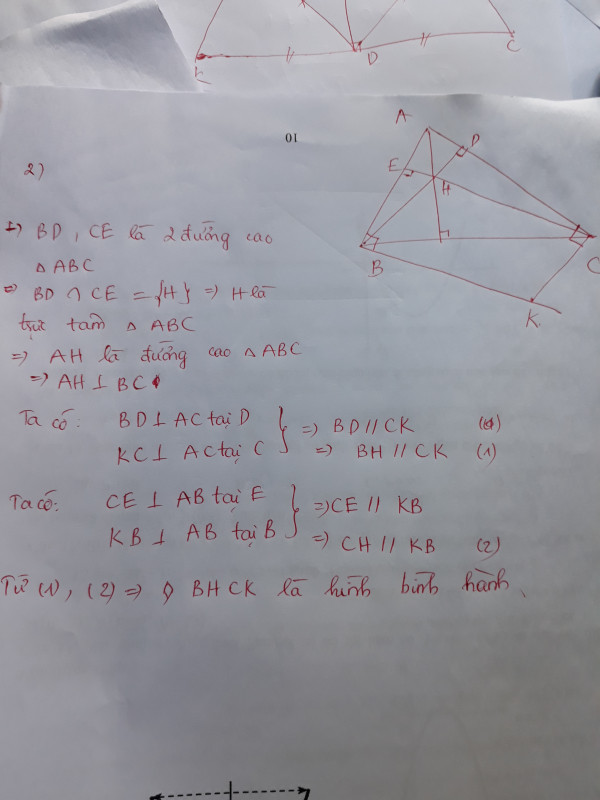 K
D
C
10
2)
A
D
E
H
B
C
K
=) BD, CE là 2 đường cao
△ ABC
=) BD ∩ CE = {H} => H là
trực tâm △ ABC
=> AH là đường cao △ ABC
=> AH ⊥ BC
Ta có: BD ⊥ AC tại D
KC ⊥ AC tại C
=> BD // CK
=> BH // CK (1)
Ta có: CE ⊥ AB tại E
KB ⊥ AB tại B
=> CE // KB
=> CH // KB (2)
Từ (1), (2) => ◊ BHCK là hình bình hành.